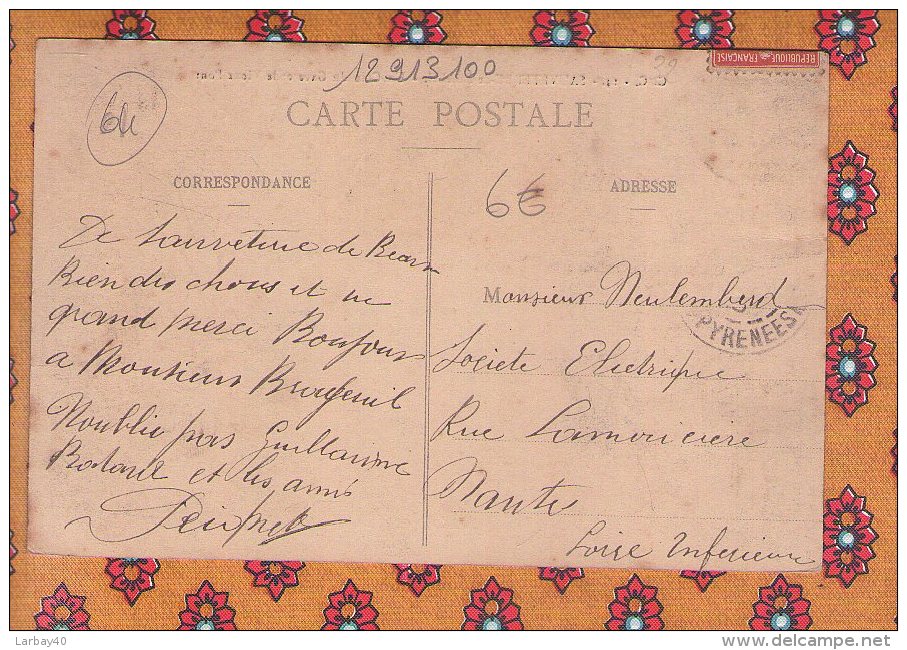 12913100
64
CARTE POSTALE
REPUBLIQUE FRANCAISE
CORRESPONDANCE
De Sauveterre de Bearn
Bien des choses et un
grand merci Bonjour
a Monsieur
Noublie pas Guillaume
et les amis
6€
ADRESSE
Monsieur
PYRENEES
Société Electrique
Rue Lamoricière
Nantes
Loire Inferieure
Larbay40
www.delcampe.net